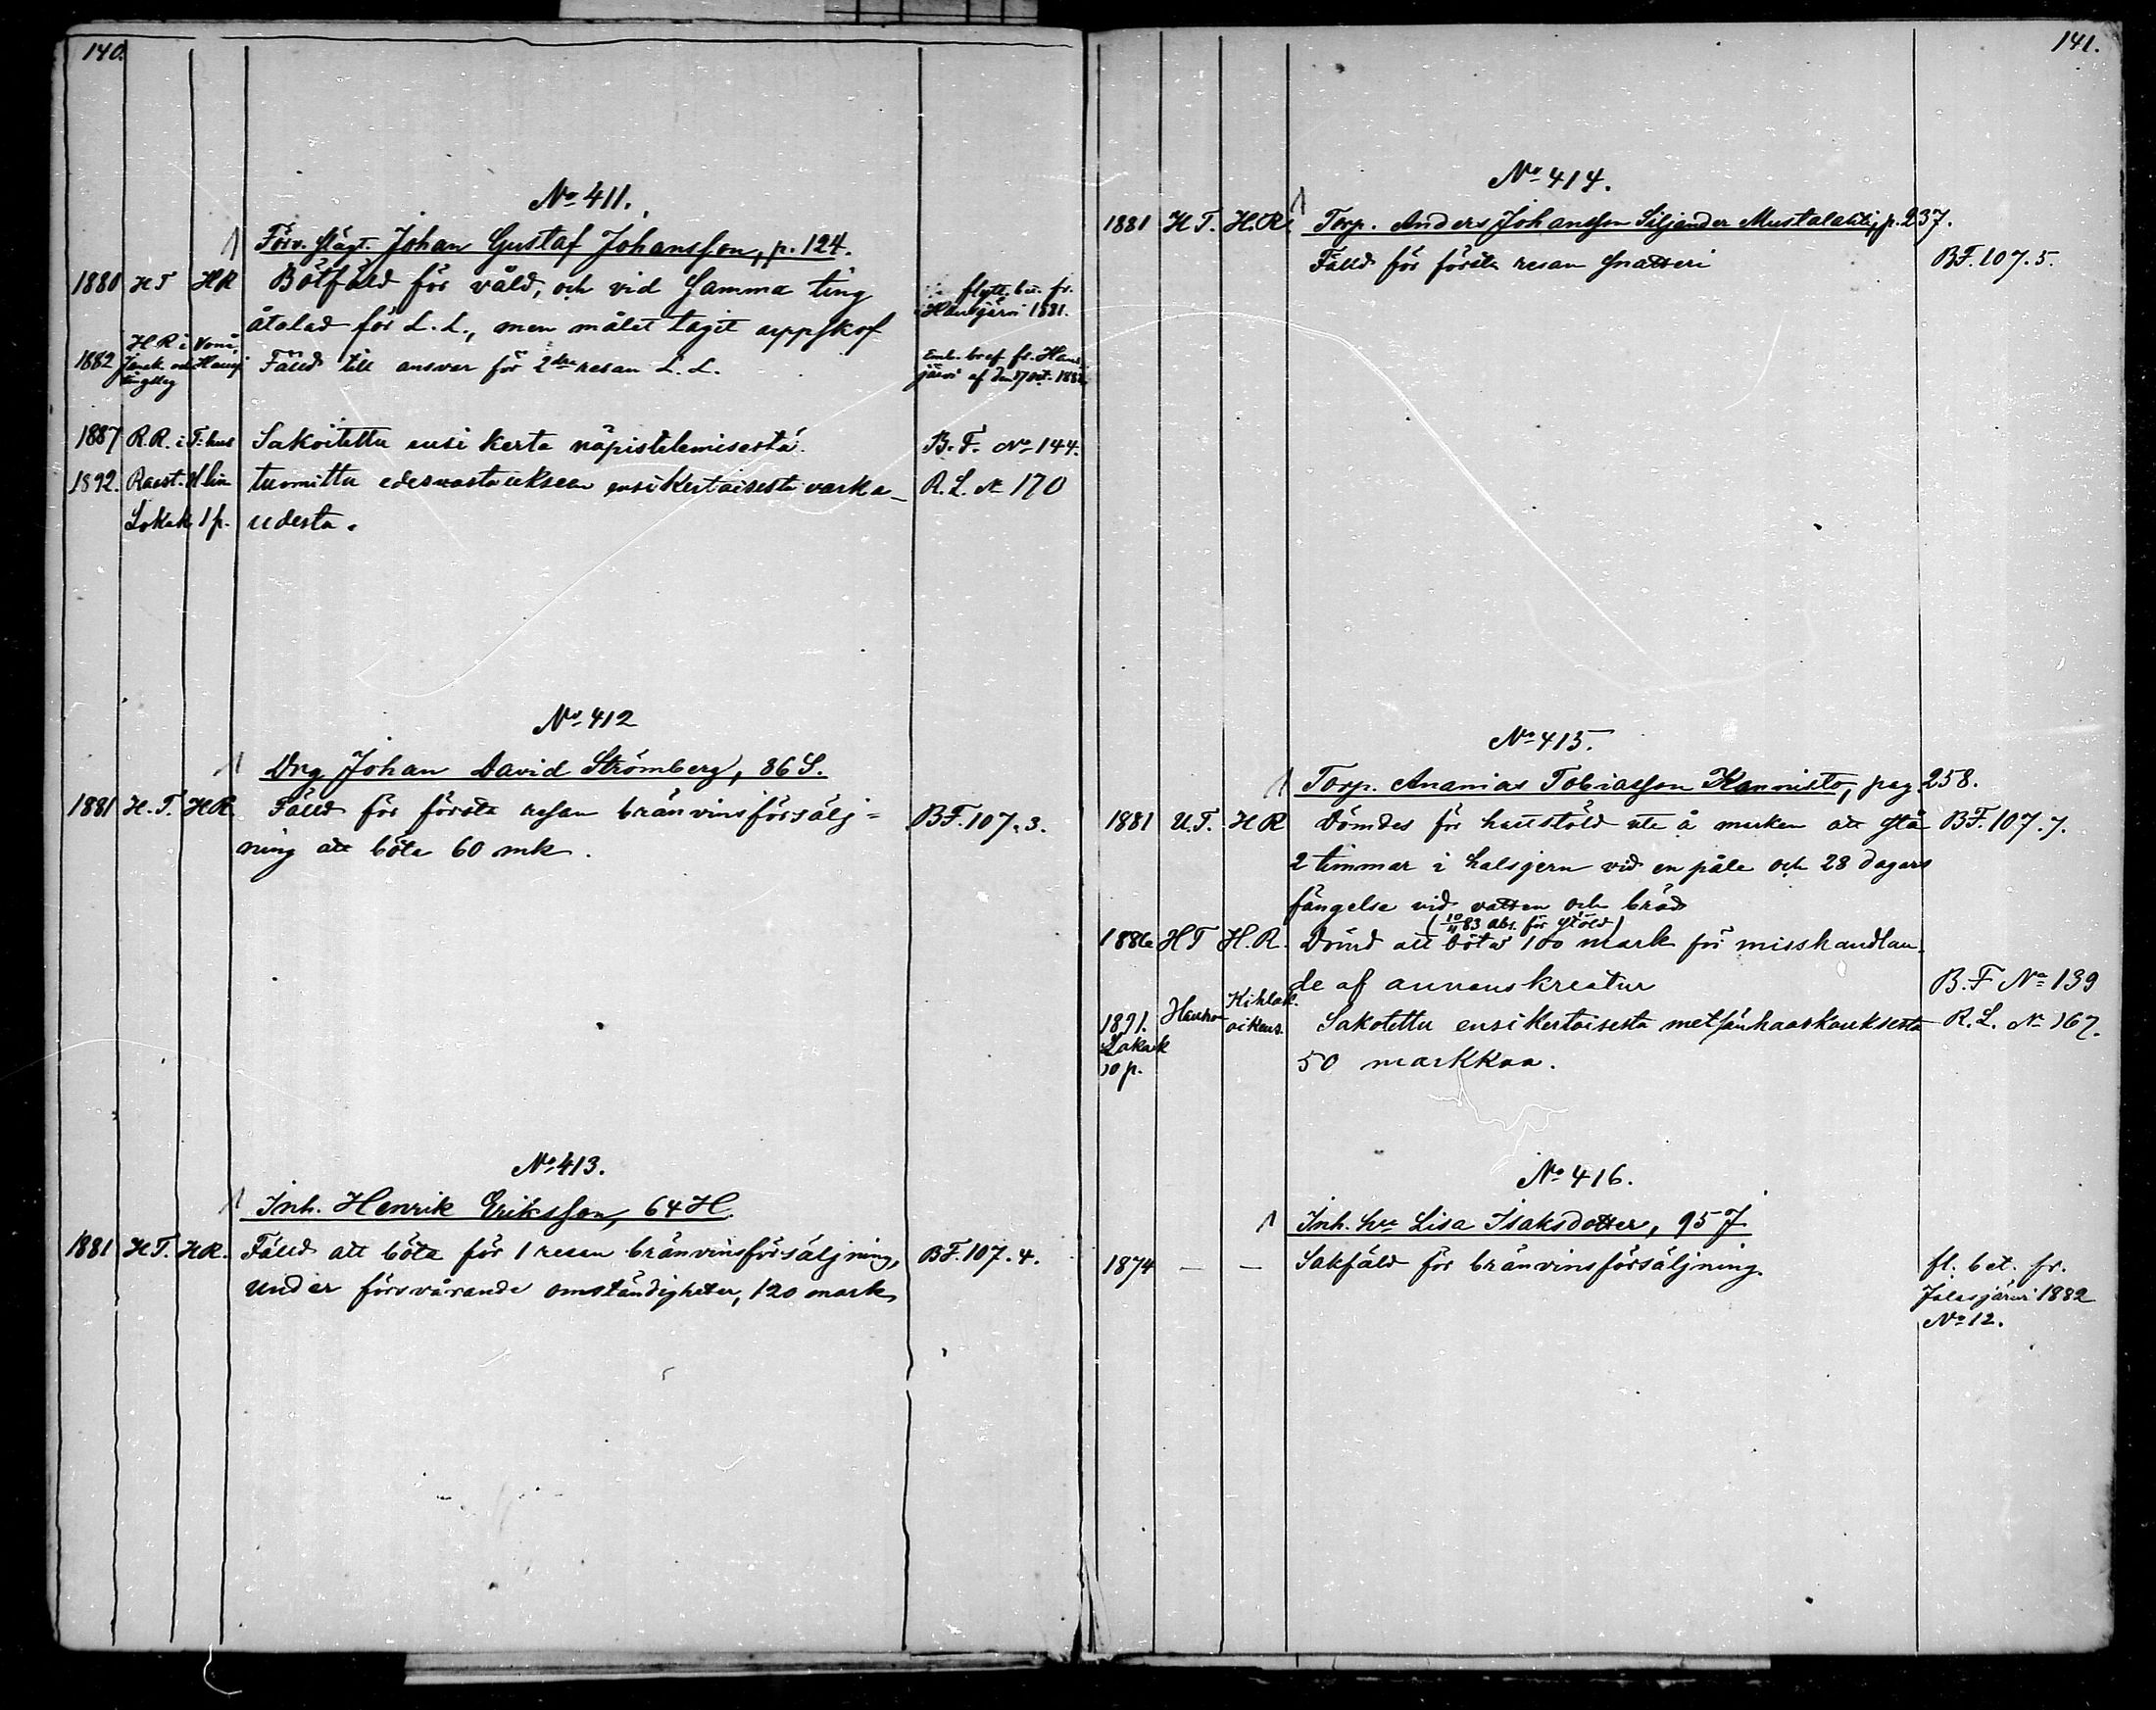 140.
No 411.
Förv. Hägt. Johan Gustaf Johansson, p. 124.
1880 HT HR Bötfäld för våld, och vid samma ting
åtalad för L. L., men målet tagit uppskof
flytt. bet. fr.
Hausjärvi 1881.
1882 H R i Vonå,
Janak. och Hausj
tingslag
Fälld till ansvar för 2dra resan L. L.
Emb. bref fr. Haus
järvi af den 17 oct. 1882
1887 R. R. i T:hus Sakoitettu ensi kerta näpistelemisestä. B. F. No 144.
1892. Raast. H:lin tuomittu edesvastaukseen ensikertaisesta varka- R. L. No 170
Lokak 1 p. udesta.
No 412
Drg Johan David Strömberg, 86 S.
1881 H. T. H R. Fälld för första resan bränvinsförsälj= BF. 107. 3.
ning att böta 60 mk.
No 413.
Inh. Henrik Eriksson, 64 H.
1881 H T. H R. Fälld att böta för 1 resan bränvinsförsäljning, BF. 107. 4.
under försvårande omständigheter, 120 mark
141.
No 414.
1881 H T. H. R. Torp. Anders Johansson Siljander Mustalahti, p. 237.
Fälld för första resan snatteri BF. 107. 5.
No 415.
Torp. Ananias Tobiasson Kannisto, pag. 258.
1881 U. T. H R Dömdes för stöld ute å marken att stå BF. 107. 7.
2 timmar i halsjern vid en påle och 28 dagars
fängelse vid vatten och bröd
(10/11 83 abs. för stöld)
1886 H T H. R. Dömd att böta 100 mark för misshandlan-
de af annans kreatur B. F No 139
1891. Hauho Kihlak. oikeus. Sakotettu ensikertaisesta metsänhaaskauksesta R. L. No 167.
Lokak
10 p.
50 markkaa.
No 416.
Inh. hu Lisa Isaksdotter, 95 J
1874 — — Sakfäld för bränvinsförsäljning.
fl. bet. fr.
Jalasjärvi 1882
No 12.